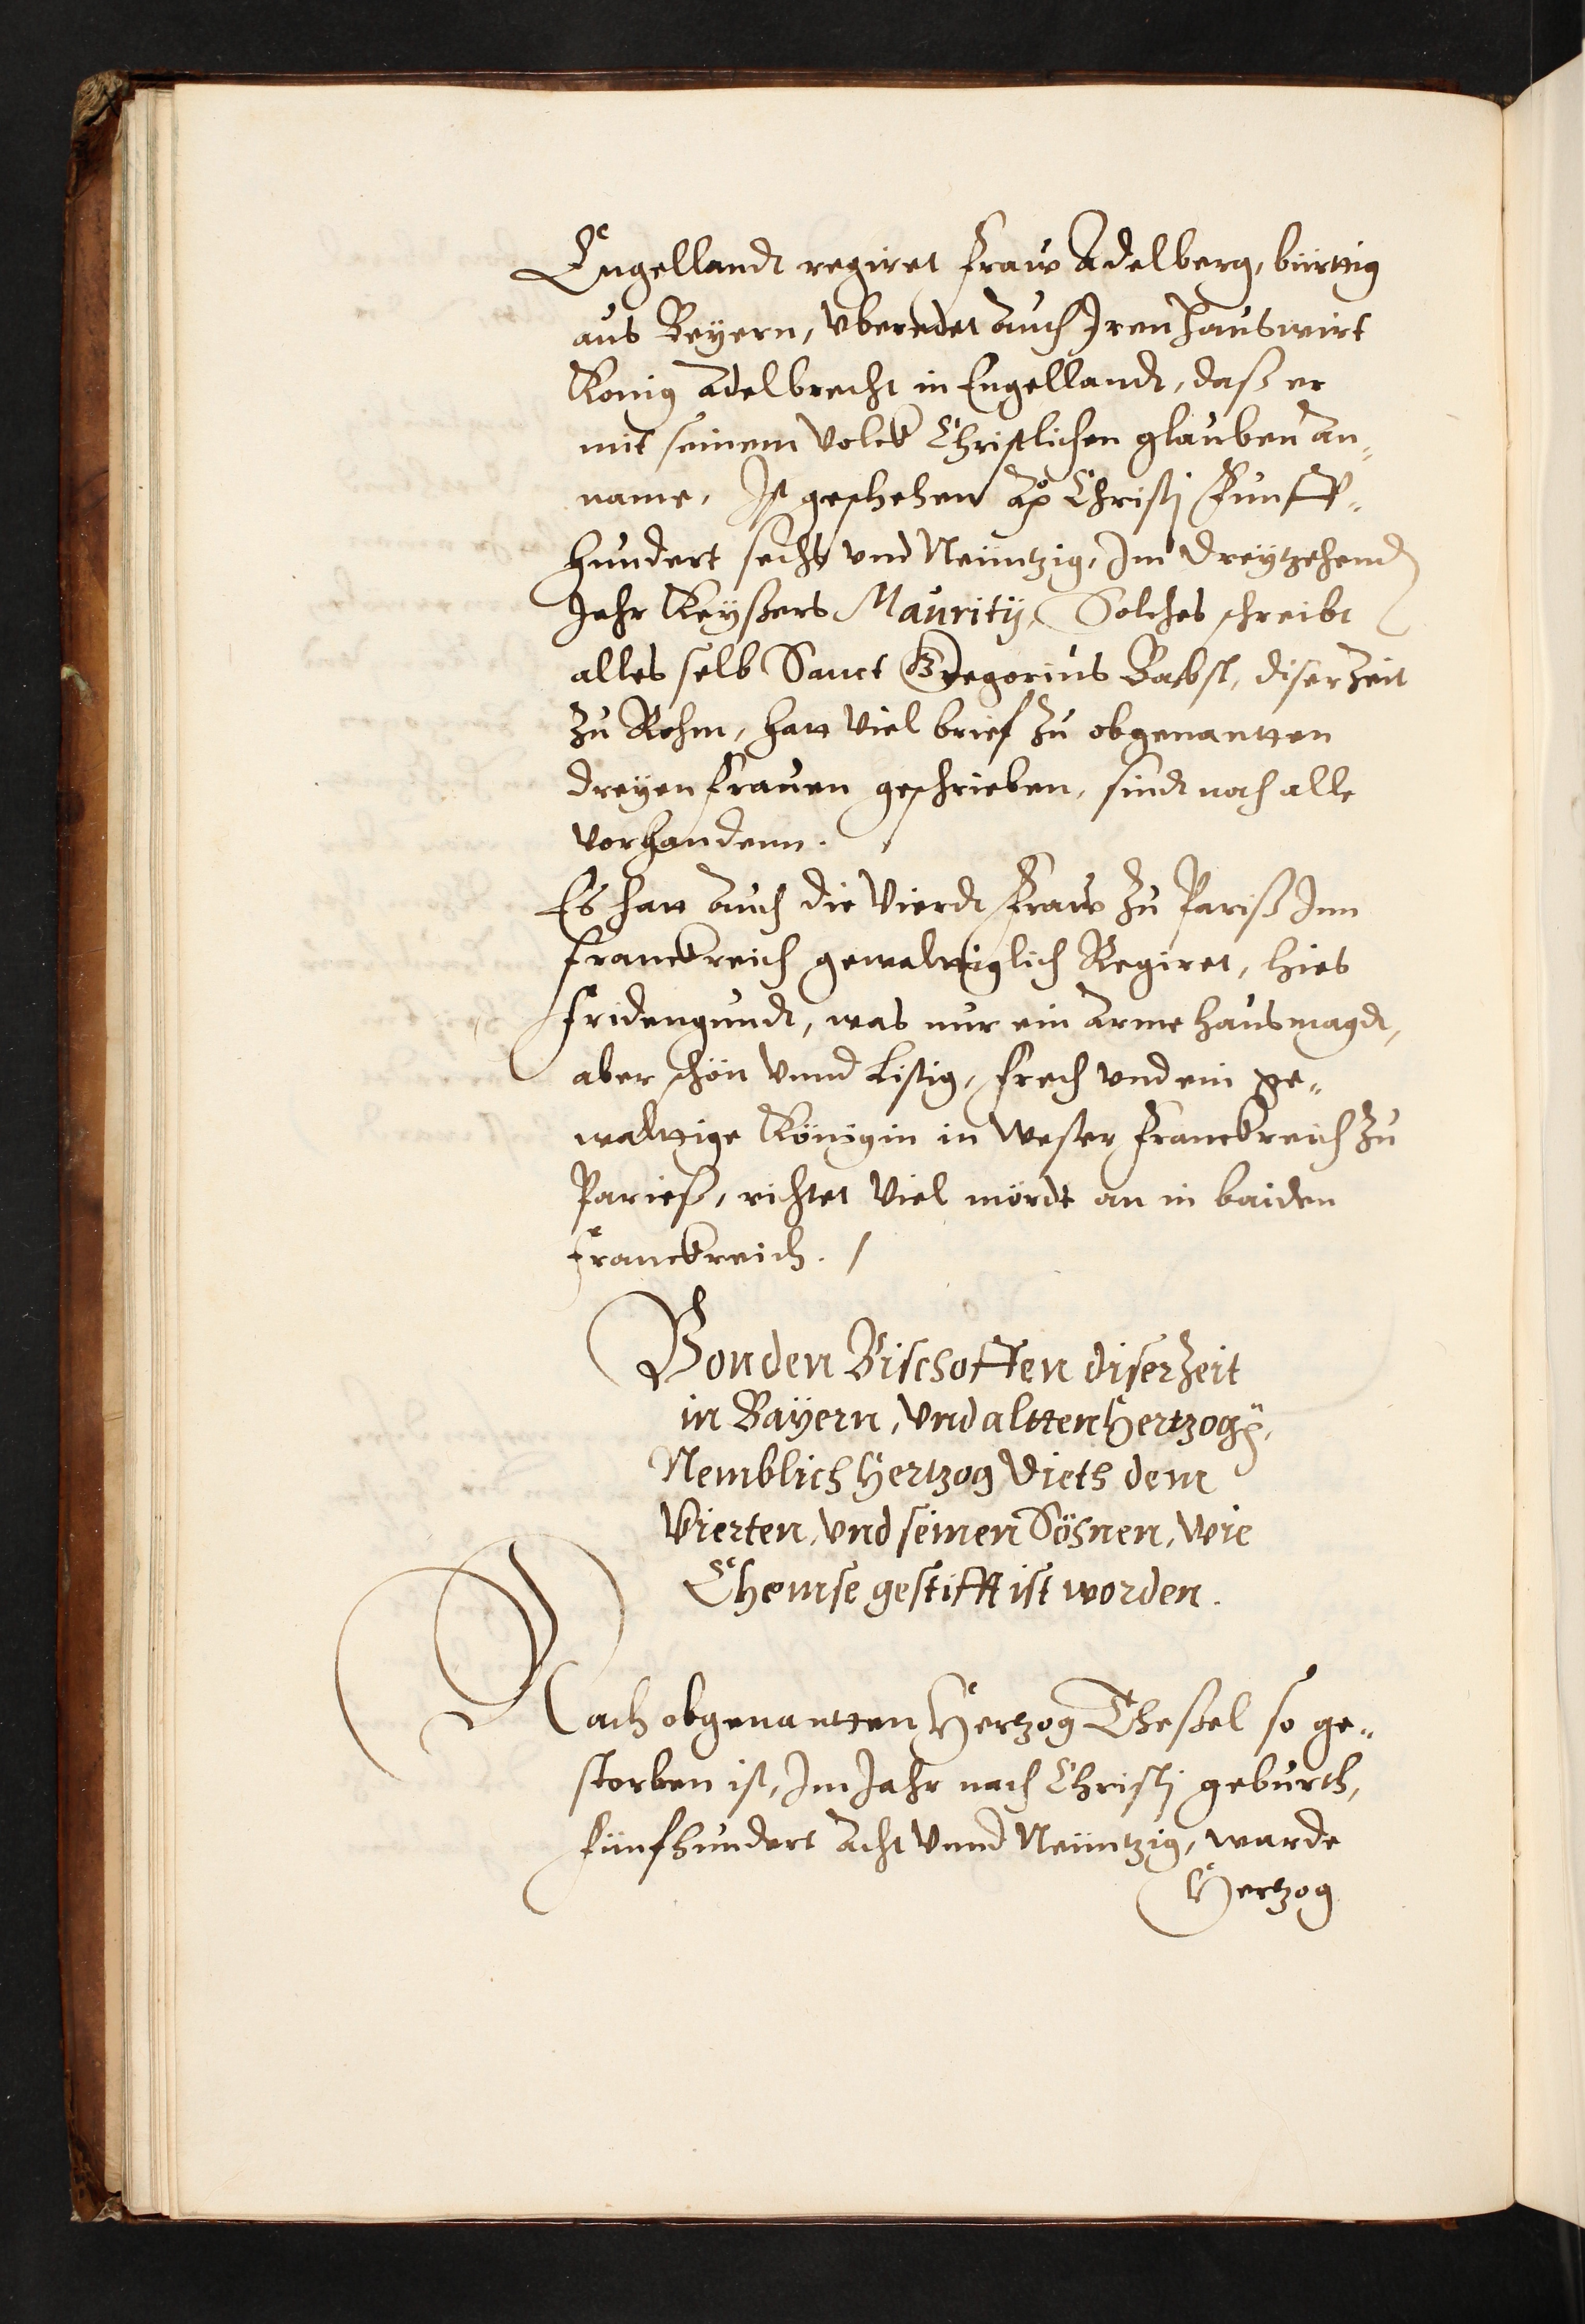 Engellandt regiret Fraw Adelberg, bürttig
aus Beyern, vberedet auch Iren Hauswirt
König Adelbrecht in Engellandt, daß er
mit seinem Volck Christlichen glauben an„
name, Ist geschehen Ao Christj Funff„
hundert sechs vnd Neüntzig, Im dreytzehend
Jahr Keyßers Maurity, Solches schreibt
alles selb Sanct Gregorius Babst, diser Zeit
zu Rohm, hatt viel brief zu obgenantten
dreyen Frauen geschrieben, sindt noch alle
vorhandenn.
Es hatt auch die Vierdt Fraw zu Pariß Inn
Franckreich gewalttiglich Regiret, hies
Fridengundt, was nur ein arme hausmagdt,
aber schön vnnd Listig, frech vnd ein ge„
walttige Königin in Wester Franckreich zu
Parieß, richtet viel mördt an in baiden
Franckreich. /
Von den Bischoffen diser Zeit
in Bayern, vnd altten Hertzogen,
Nemblich Hertzog Dieth dem
Vierten, vnd seinen Söhnen, wie
Chemse gestifft ist worden.
Nach obgenantten Hertzog Theßel so ge„
storben ist, Im Jahr nach Christj geburth,
fünfhundert Acht vnnd Neüntzig, warde
Hertzog